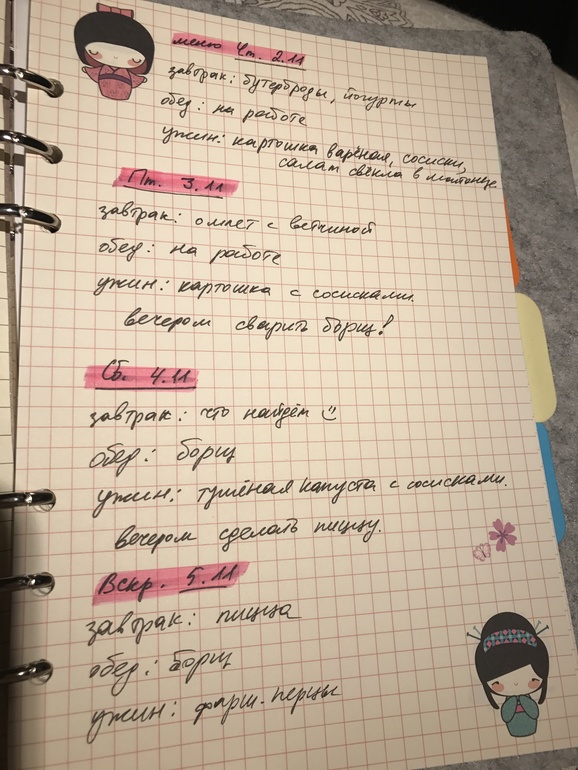 меню Чт. 2.11
завтрак: бутерброды, йогурты
обед: на работе
ужин: картошка варёная, сосиски,
салат свёкла в майонезе
Пт. 3.11
завтрак: омлет с ветчиной
обед: на работе
ужин: картошка с сосисками.
вечером сварить борщ!
Сб. 4.11
завтрак: что найдём
обед: борщ
ужин: тушёная капуста с сосисками.
вечером сделать пиццу.
Вскр. 5.11
завтрак: пицца
обед: борщ
ужин: фарш. перцы